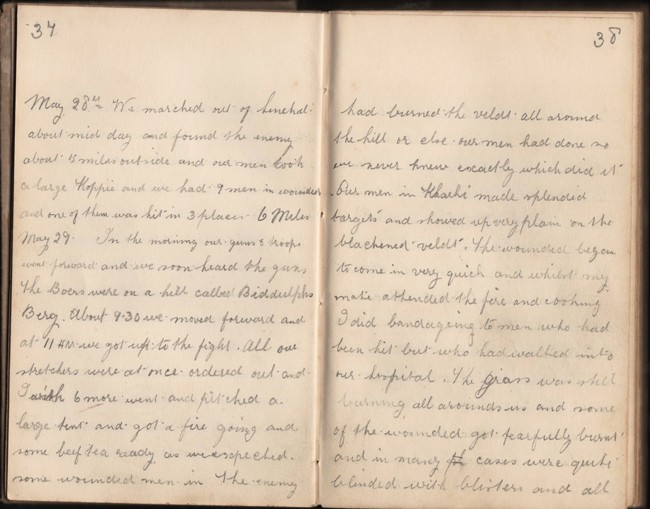 37
May 28th We marched out of Senekal
about mid day and found the enemy
about 5 miles outside and our men took
a large Koppie and we had 9 men in wounded
and one of them was hit in 3 places 6 Miles
May 29 In the morning our guns & troops
went forward and we soon heard the guns
the Boers were on a hill called Biddulphs
Berg. About 9.30 we moved forward and
at 11 AM we got up to the fight. All our
stretchers were at once ordered out and
I with 6 more went and pitched a
large tent and got a fire going and
some beef tea ready as we expected
some wounded men in the enemy
38
had burned the veldt all around
the hill or else our men had done so
we never knew exactly which did it
Our men in Khaki made splendid
targets and showed up very plain on the
blackened veldt. The wounded began
to come in very quick and whilst my
mate attended the fire and cooking
I did bandageing to men who had
been hit but who had walked into
our hospital. The grass was still
burning all around us and some
of the wounded got fearfully burnt
and in many cases were quite
blinded with blisters and all